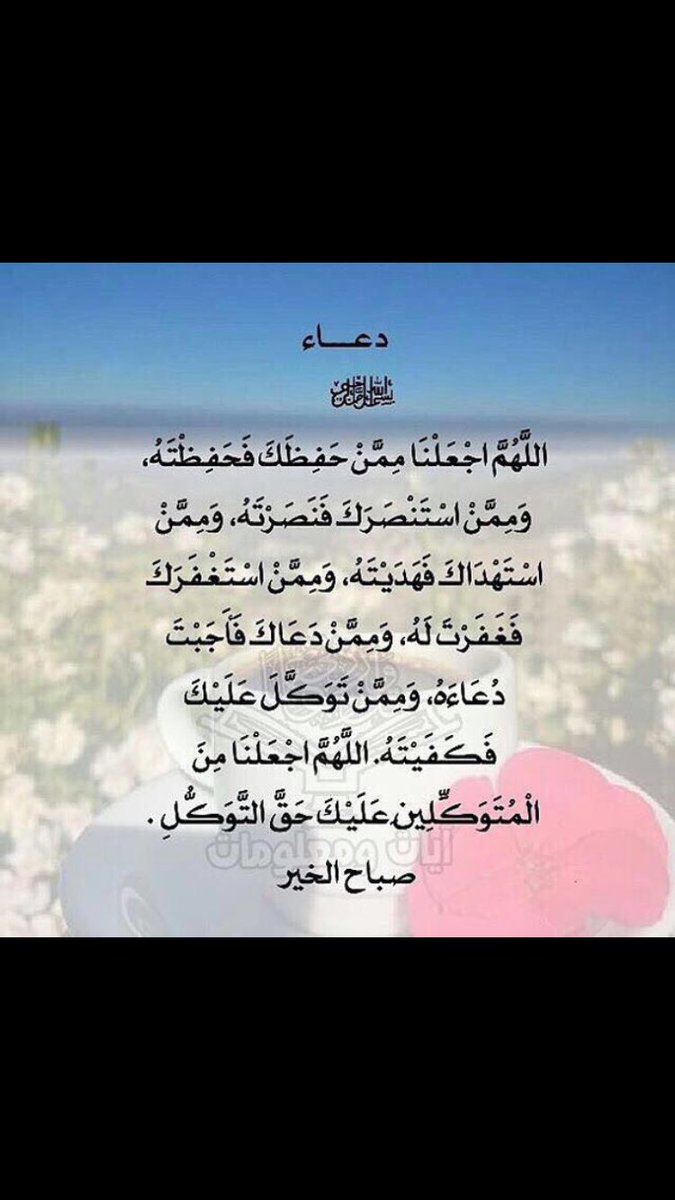 دعـــاء
بسم الله الرحمن الرحيم
اللَّهُمَّ اجْعَلْنَا مِمَّنْ حَفِظَكَ فَحَفِظْتَهُ،
وَمِمَّنْ اسْتَنْصَرَكَ فَنَصَرْتَهُ، وَمِمَّنْ
اسْتَهْدَاكَ فَهَدَيْتَهُ، وَمِمَّنْ اسْتَغْفَرَكَ
فَغَفَرْتَ لَهُ، وَمِمَّنْ دَعَاكَ فَأَجَبْتَ
دُعَاءَهُ، وَمِمَّنْ تَوَكَّلَ عَلَيْكَ
فَكَفَيْتَهُ. اللَّهُمَّ اجْعَلْنَا مِنَ
الْمُتَوَكِّلِينَ عَلَيْكَ حَقَّ التَّوَكُّلِ .
آيات ومعلومات
صباح الخير